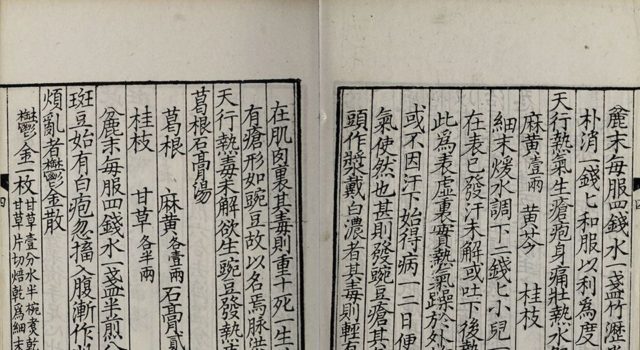 四
麄末每服四錢水一盞竹瀝
朴消一錢匕和服以利為度
天行熱氣生瘡疱身痛壯熱水
麻黃壹兩 黃芩 桂枝
細末煖水調下二錢匕小兒
在表已發汗未解或吐下後
此為表虛裏實熱氣躁於外
或不因汗下始得病一二日便
氣使然也甚則發豌豆瘡其
頭作漿戴白濃者其毒則輕有
在肌肉裏其毒則重十死一生
有瘡形如豌豆故以名焉脉洪
天行熱毒未解欲生豌豆發熱疼
葛根石膏湯
葛根 麻黃各壹兩 石膏貳
桂枝 甘草各半兩
麄末每服四錢水一盞半煎八
斑豆始有白疱忽搐入腹漸作
煩亂者欝金散
欝金一枚 甘草壹分水半椀煮乾
甘草片切焙乾為細末
四